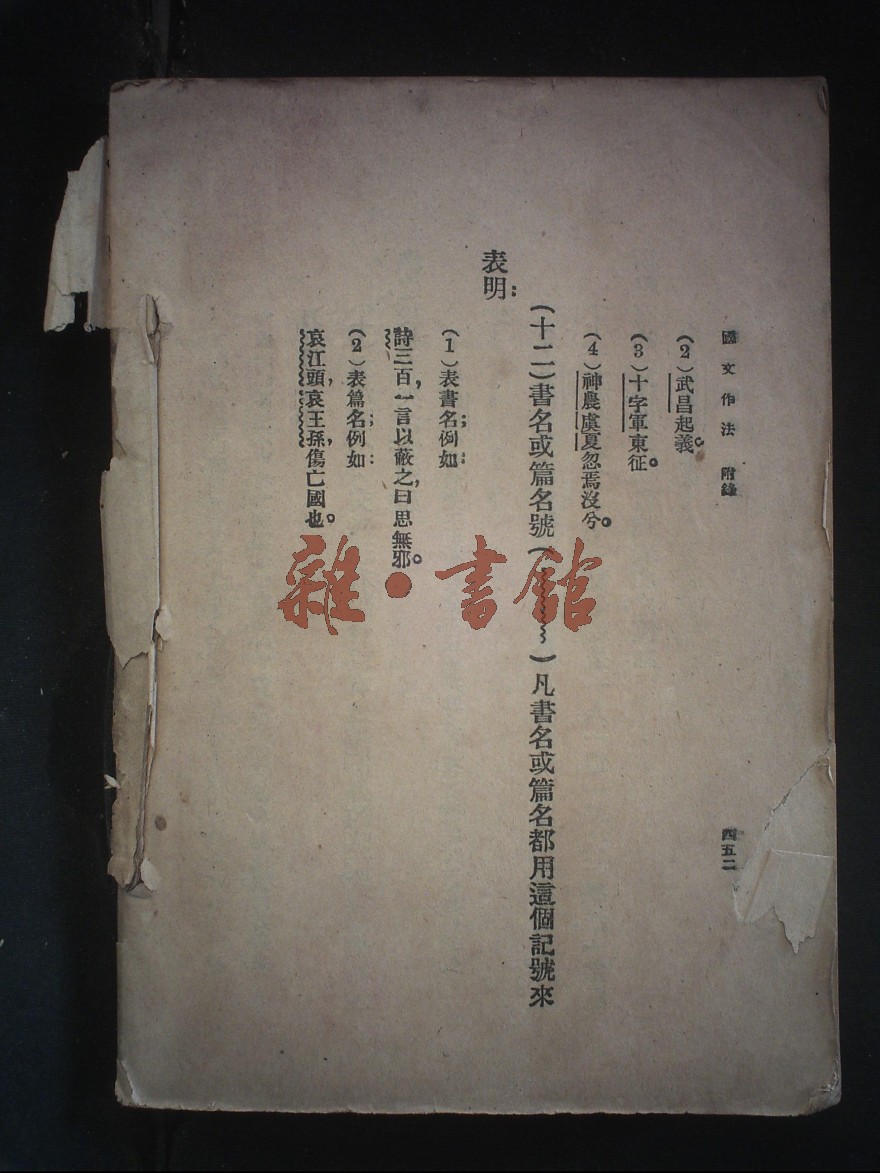 國文作法 附錄 四五二
(2)武昌起義。
(3)十字軍東征。
(4)神農虞夏忽焉沒兮。
(十二)書名或篇名號(﹏﹏﹏)凡書名或篇名都用這個記號來
表明:
(1)表書名;例如:
詩三百,一言以蔽之,曰思無邪。
(2)表篇名;例如:
哀江頭,哀王孫,傷亡國也。
雜·書館